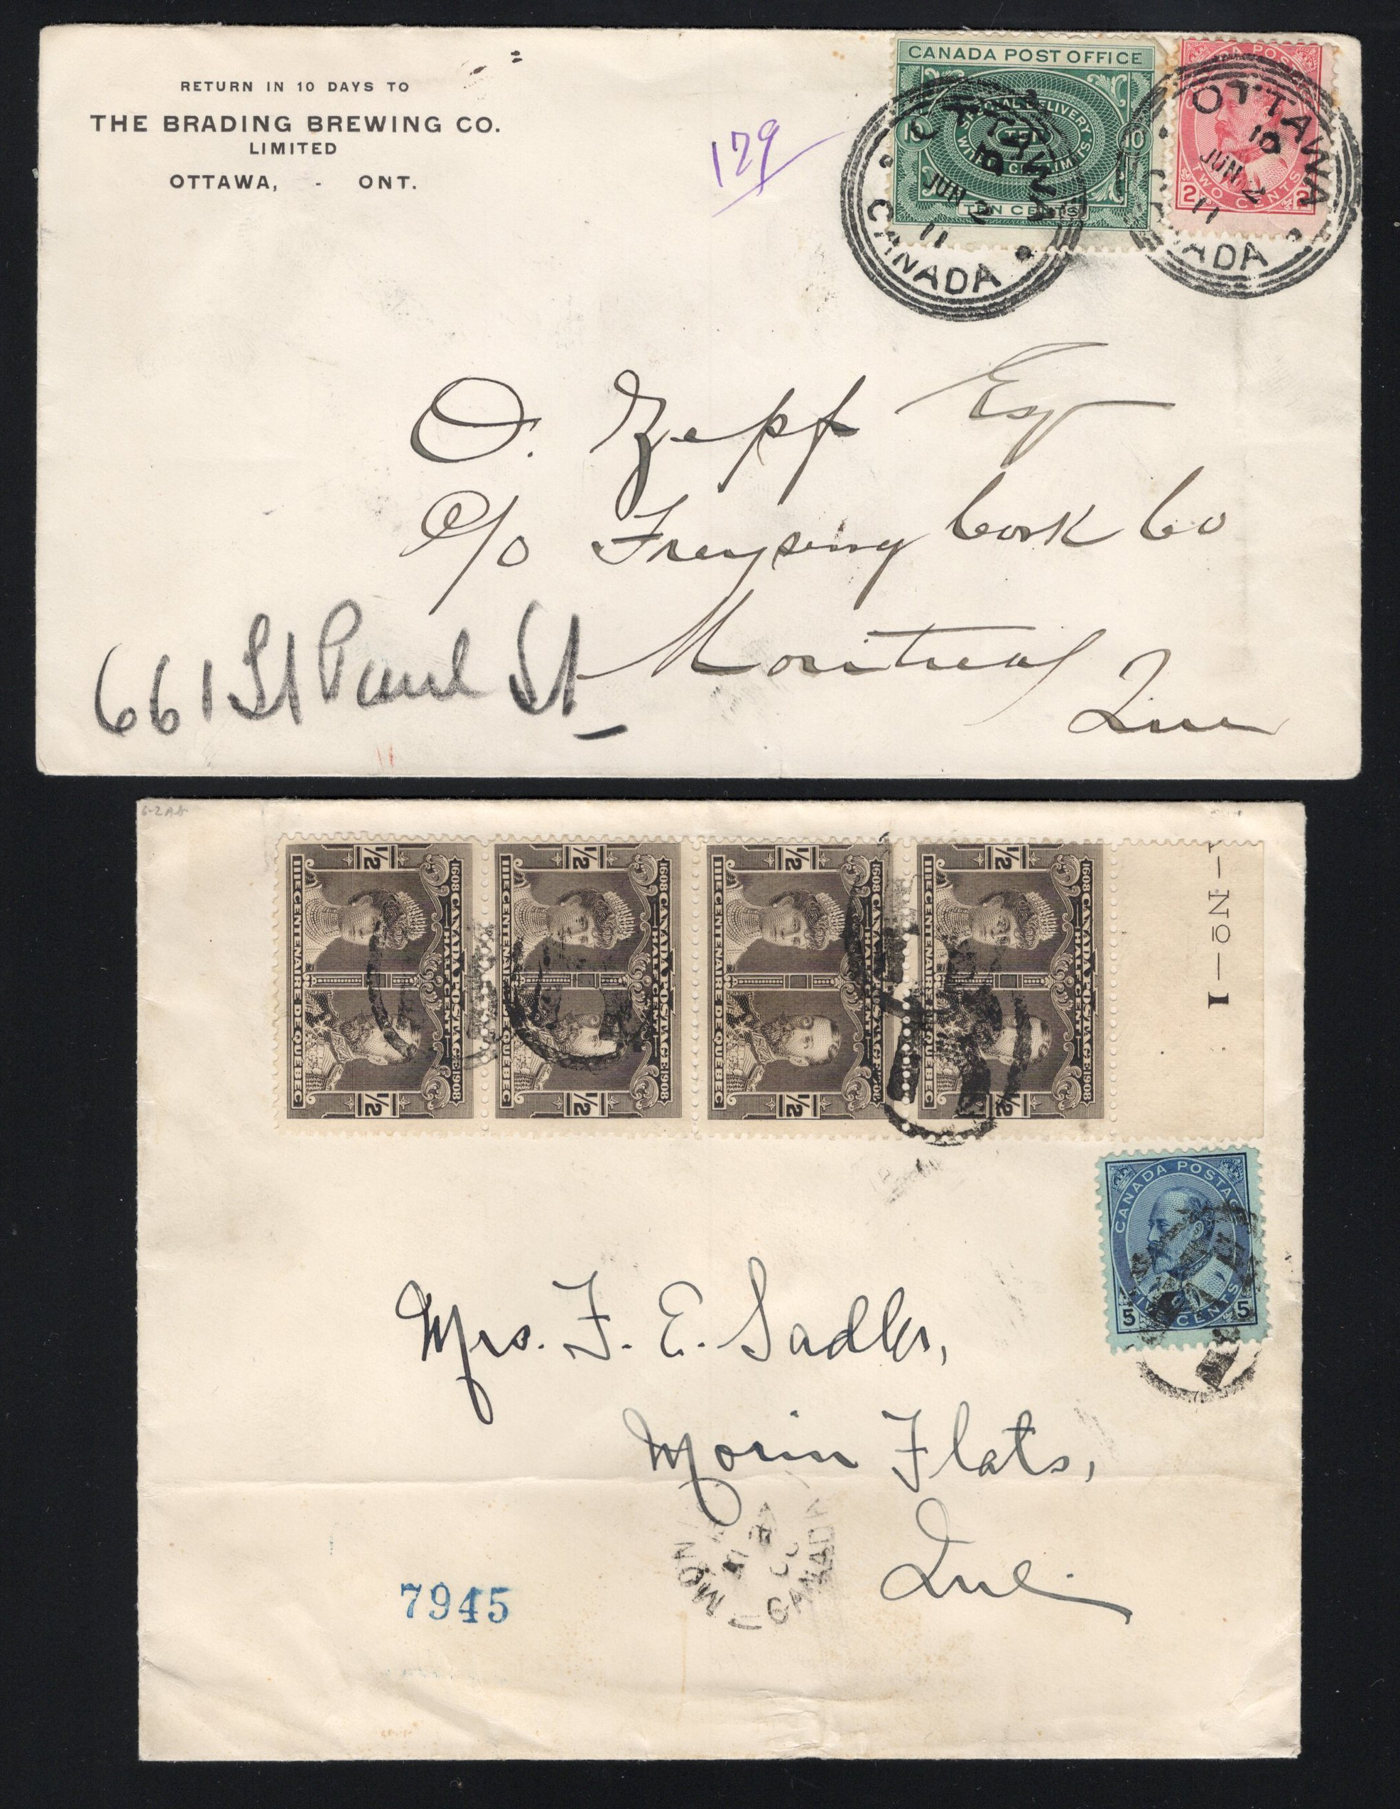 RETURN IN 10 DAYS TO
THE BRADING BREWING CO.
LIMITED
OTTAWA, - ONT.
129
CANADA POST OFFICE
SPECIAL DELIVERY
WITHIN CITY LIMITS
10 10
TEN CENTS
OTTAWA
JUN 2
11
CANADA
CANADA POSTAGE
2 TWO CENTS 2
OTTAWA
10
JUN 2
11
CANADA
O. Zepf Esq
c/o Freyseng Cork Co
Montreal
Que
661 St Paul St
6-2AA
½ ½
1608 CANADA POSTAGE 1908
HALF CENT
IIIE CENTENAIRE DE QUEBEC
½ ½
1608 CANADA POSTAGE 1908
HALF CENT
IIIE CENTENAIRE DE QUEBEC
½ ½
1608 CANADA POSTAGE 1908
HALF CENT
IIIE CENTENAIRE DE QUEBEC
½ ½
1608 CANADA POSTAGE 1908
HALF CENT
IIIE CENTENAIRE DE QUEBEC
No – 1
CANADA POSTAGE
5 FIVE CENTS 5
Mrs. F. E. Sadler,
Morin Flats,
Que.
7945
MON
CANADA